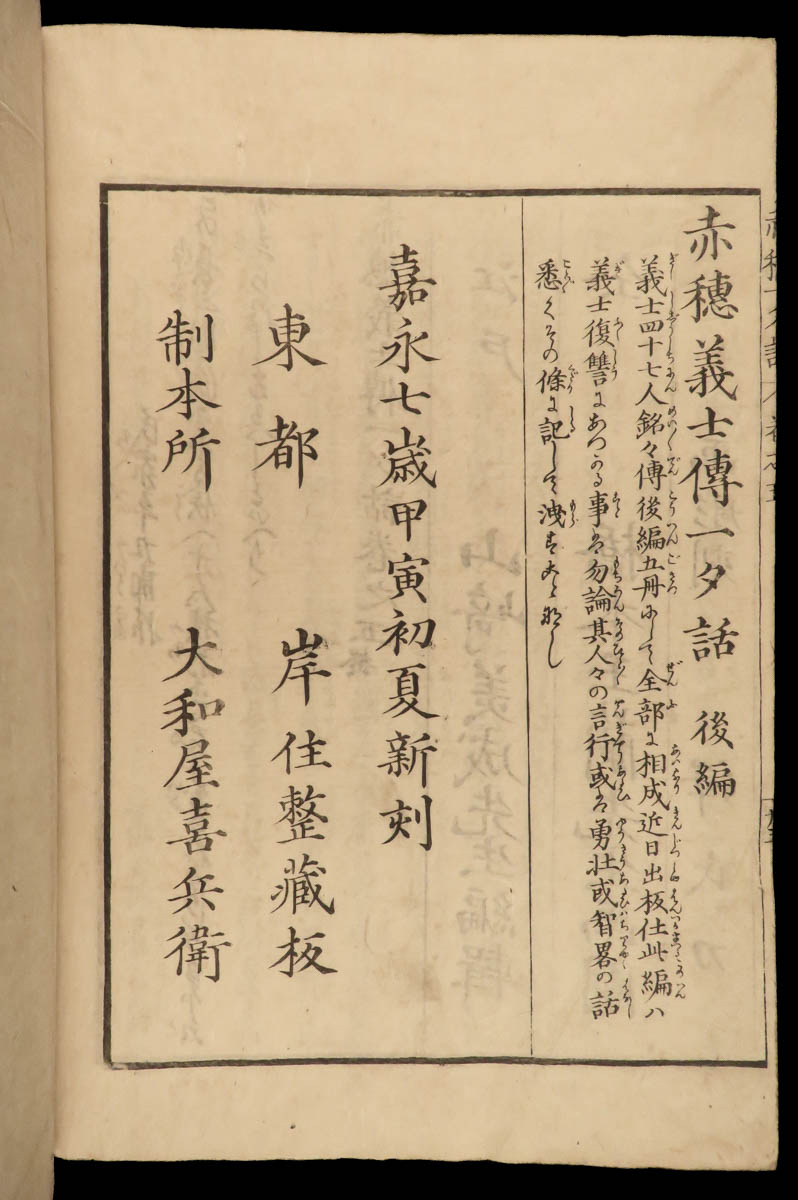 赤穗義士傳一夕話 後編
義士四十七人銘々傳後編五冊にして全部に相成近日出板仕此編ハ
義士復讐にあつかる事は勿論其人々の言行或は勇壮或智畧の話
悉くその條に記して洩すことなし
嘉永七歳甲寅初夏新刻
東都 岸住整藏板
制本所 大和屋喜兵衛